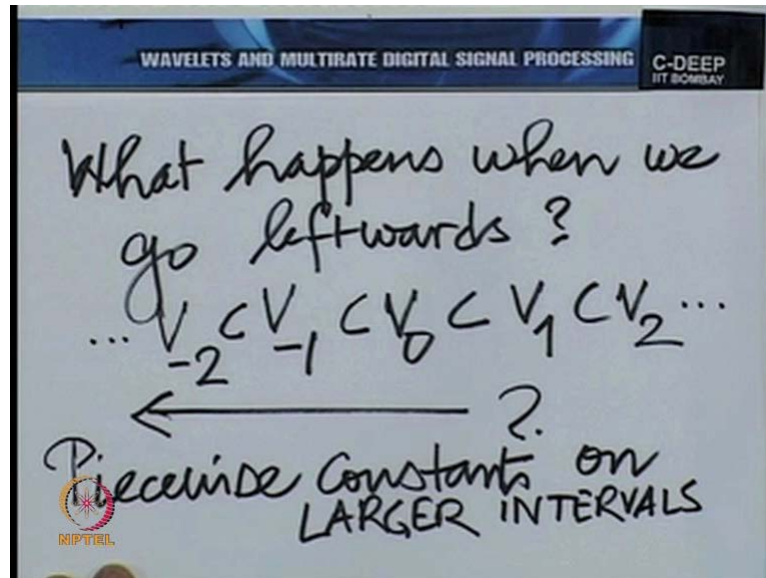 WAVELETS AND MULTIRATE DIGITAL SIGNAL PROCESSING
C-DEEP
IIT BOMBAY
What happens when we
go leftwards?
...V-2 ⊂ V-1 ⊂ V0 ⊂ V1 ⊂ V2...
← ?.
Piecewise Constants on
LARGER INTERVALS
NPTEL